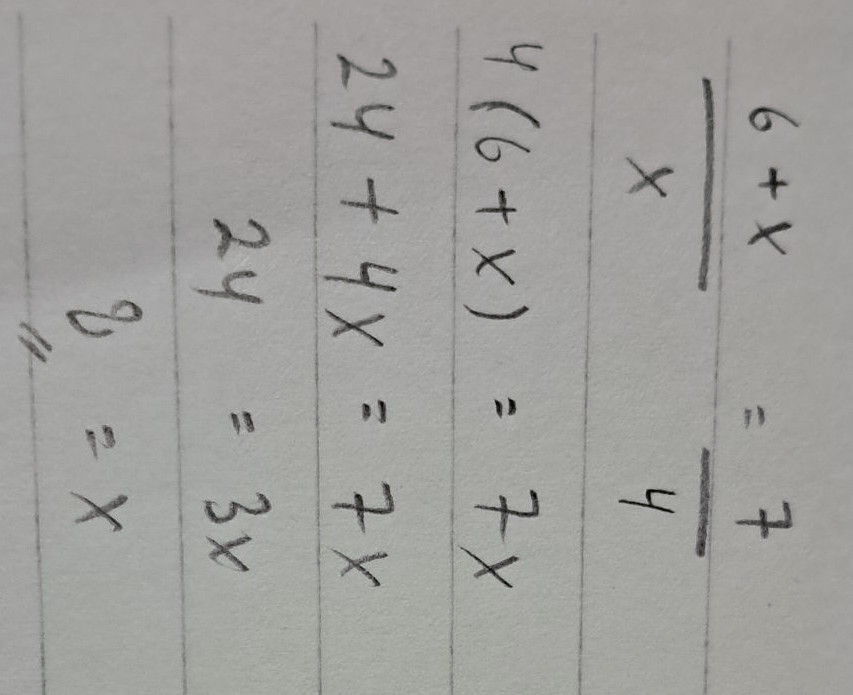 6 + x = 7
x 4
4 (6 + x) = 7x
24 + 4x = 7x
24 = 3x
8 = x